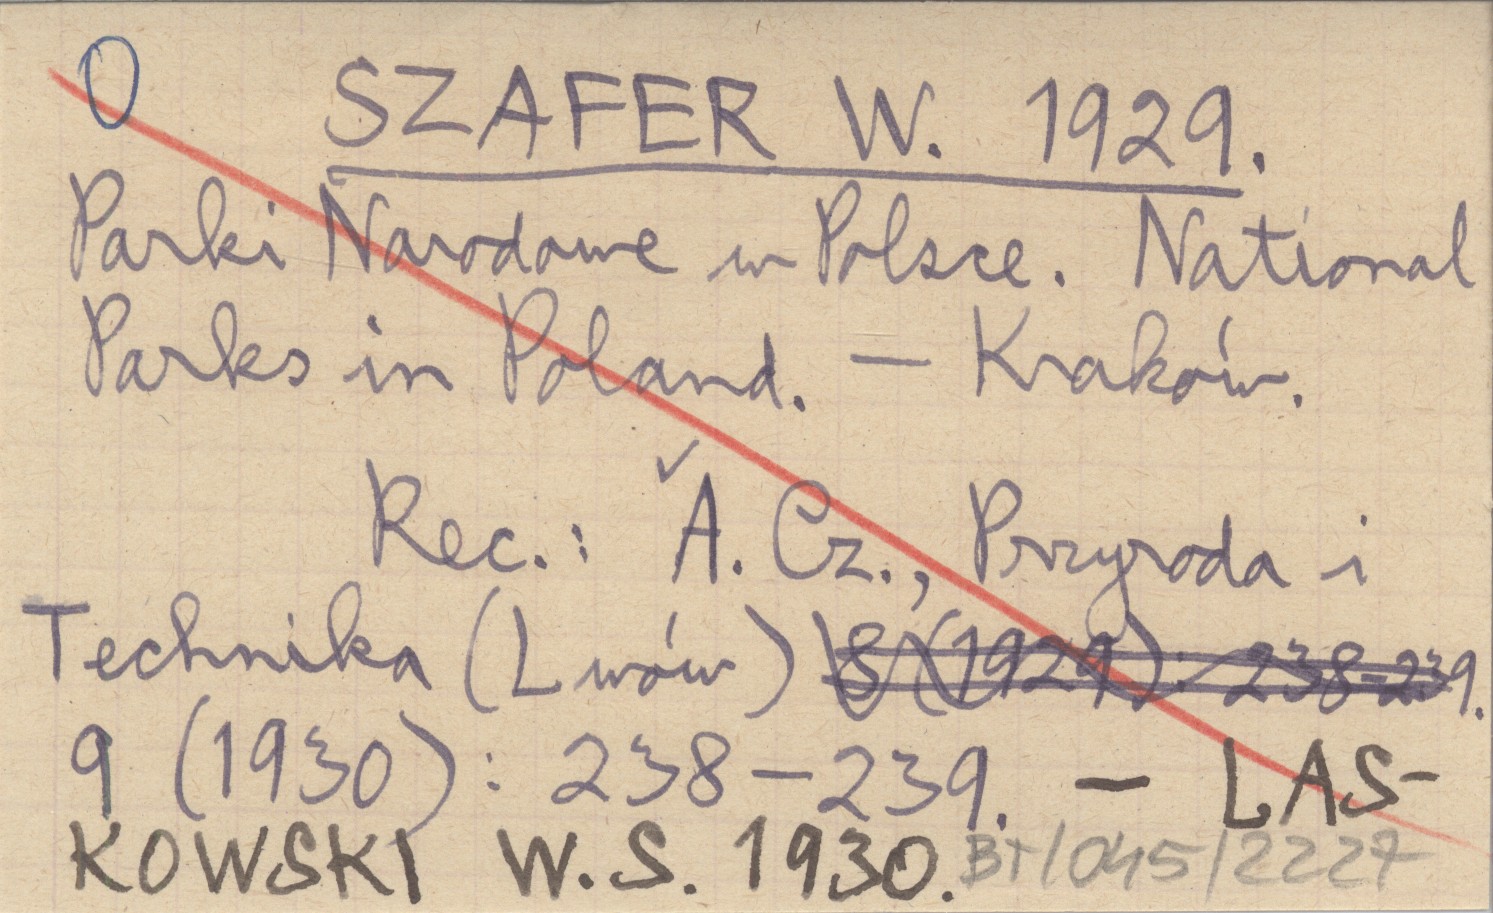 O SZAFER W. 1929.
Parki Narodowe w Polsce. National
Parks in Poland. — Kraków.
Rec.: A. Cz., Przyroda i
Technika (Lwów) 8 (1929): 238-239.
9 (1930): 238-239. — LAS-
KOWSKI W.S. 1930. BT/045/2227